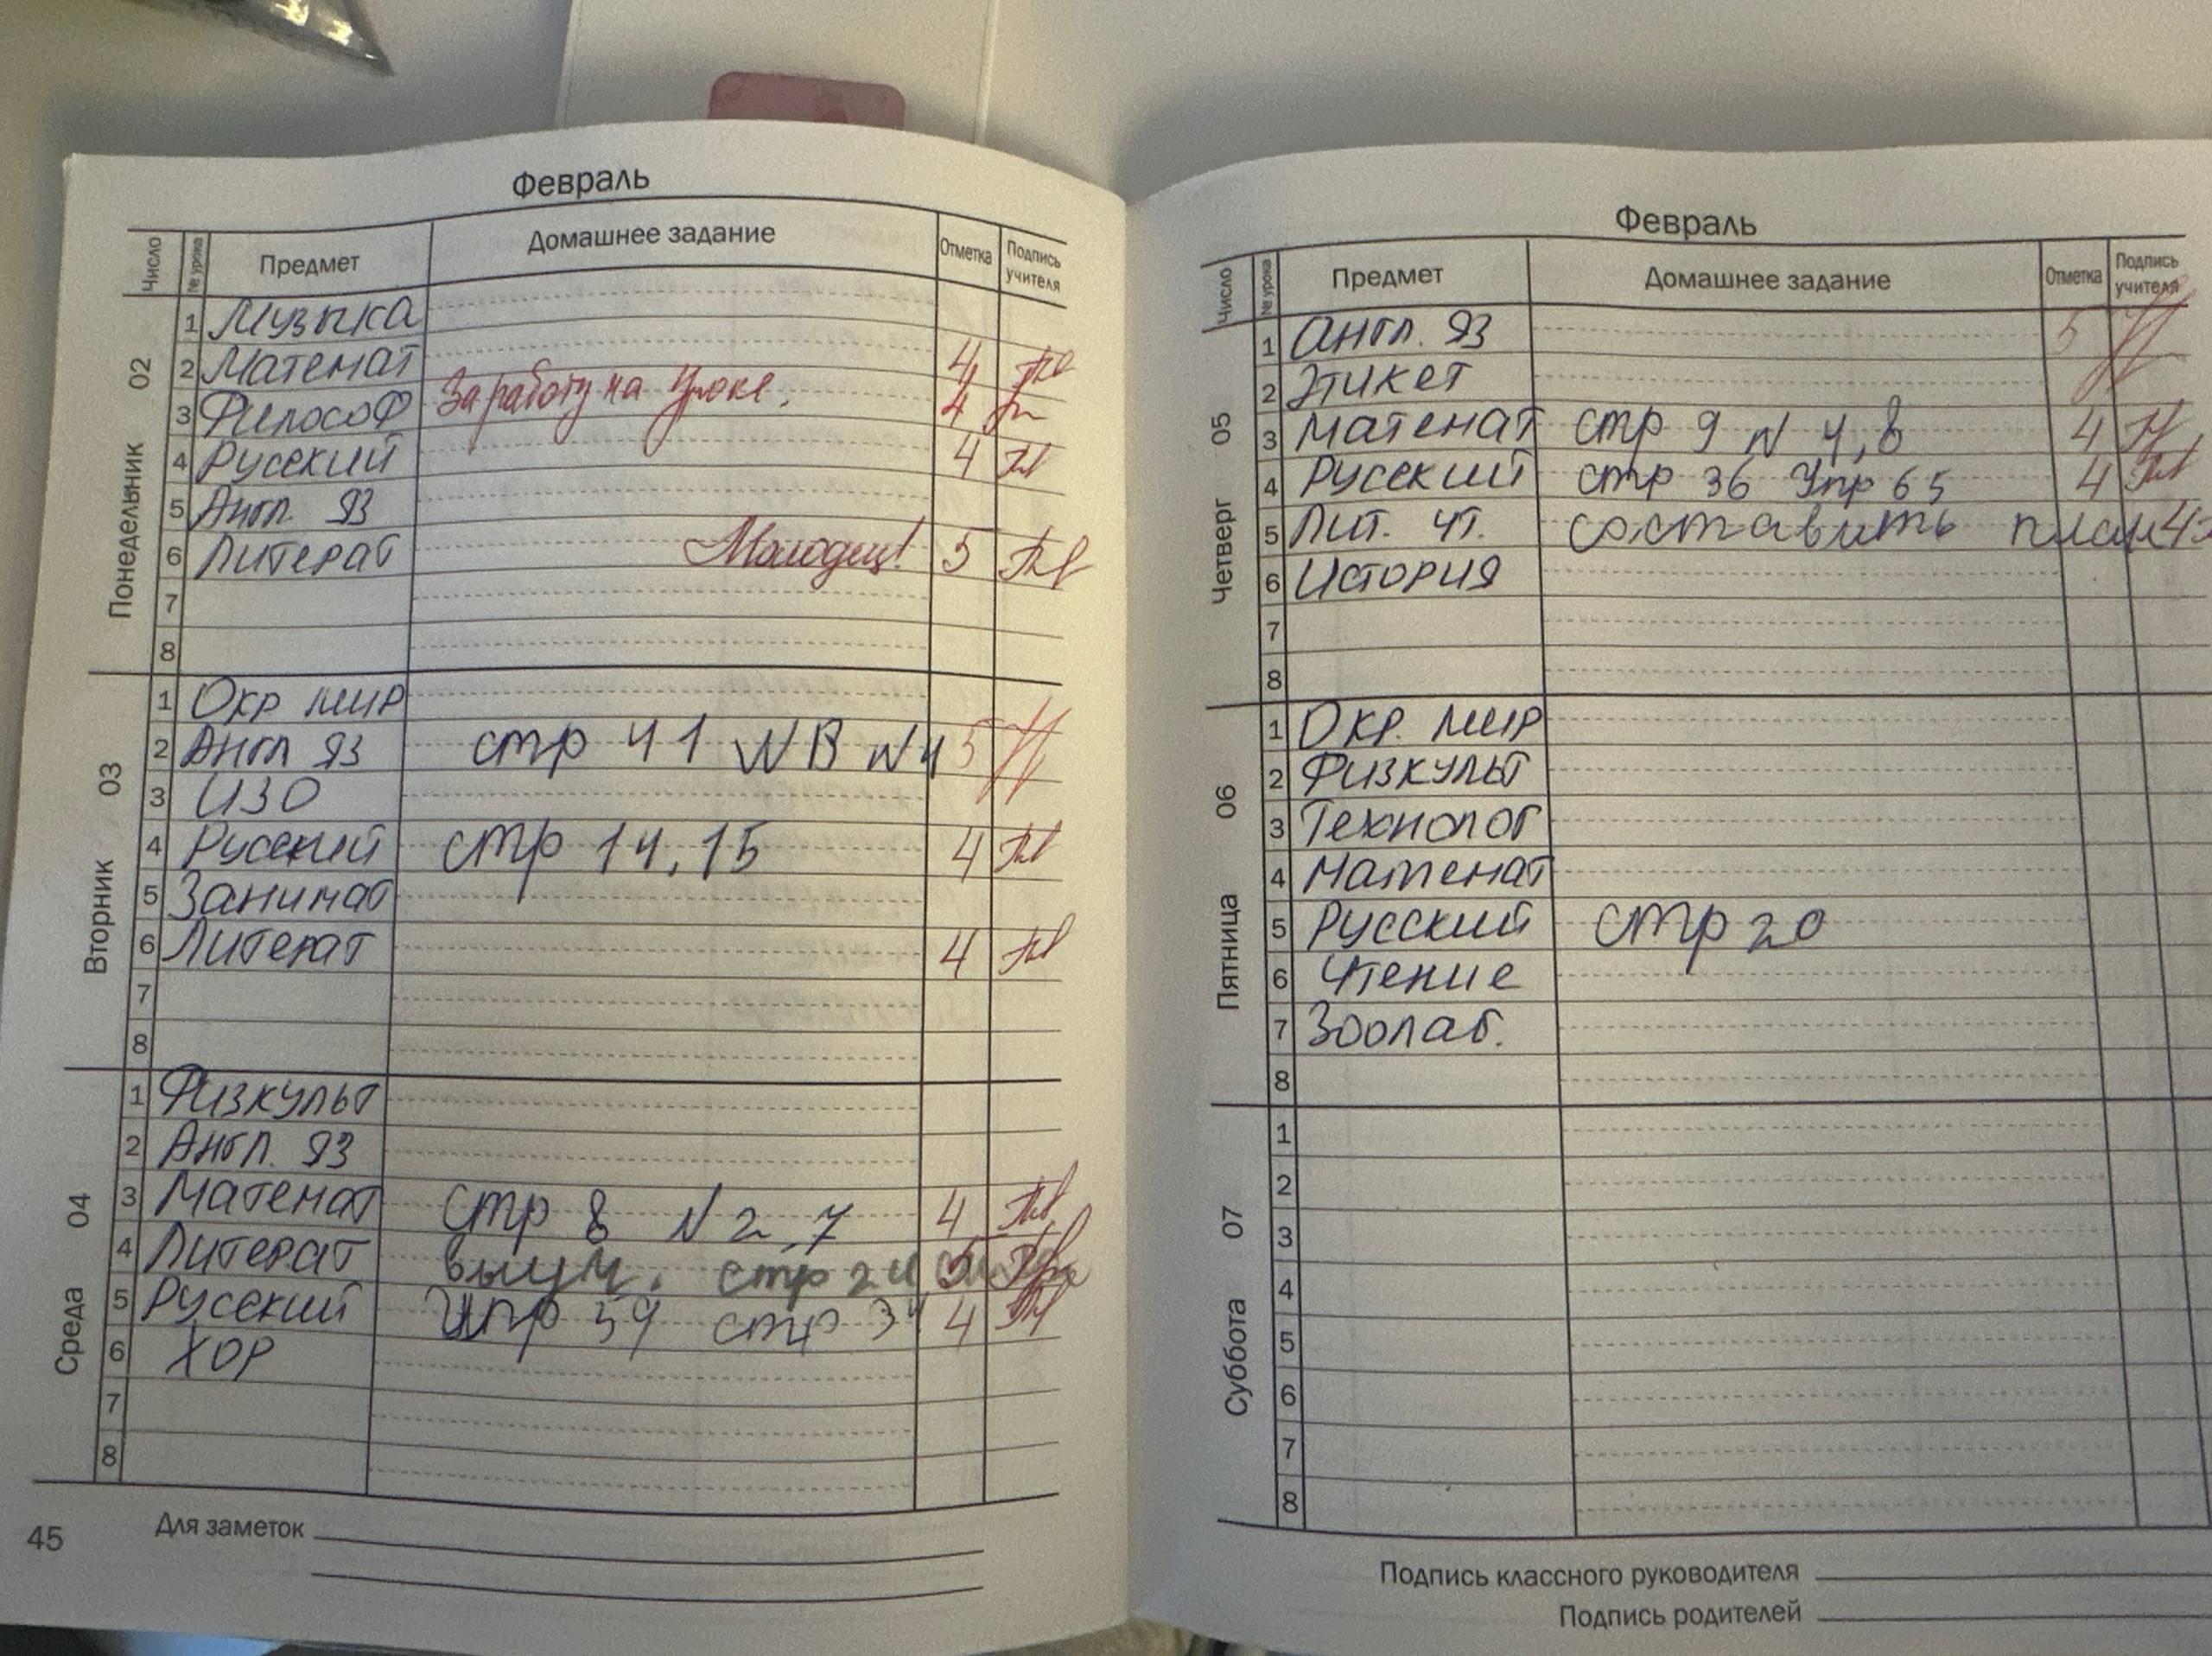 Февраль
Число № урока Предмет Домашнее задание Отметка Подпись учителя
Понедельник 02
1 Музыка
2 Математ 4
3 Философ За работу на уроке. 4
4 Русский 4
5 Англ. яз
6 Литерат Молодец! 5
7
8
Вторник 03
1 Окр мир
2 Англ яз стр 41 WB N4 5
3 ИЗО
4 Русский стр 14,15 4
5 Занимат
6 Литерат 4
7
8
Среда 04
1 Физкульт
2 Англ. яз
3 Математ стр 8 N 2,7 4
4 Литерат выуч. стр 5
5 Русский Упр 59 стр 4
6 Хор
7
8
45 Для заметок
Февраль
Число № урока Предмет Домашнее задание Отметка Подпись учителя
Четверг 05
1 Англ. яз 5
2 Этикет
3 Математ стр 9 N 4,8 4
4 Русский стр 36 Упр 65 4
5 Лит. чт. составить план 4
6 История
7
8
Пятница 06
1 Окр. мир
2 Физкульт
3 Технолог
4 Математ
5 Русский стр 20
6 Чтение
7 Зоолаб.
8
Суббота 07
1
2
3
4
5
6
7
8
Подпись классного руководителя
Подпись родителей